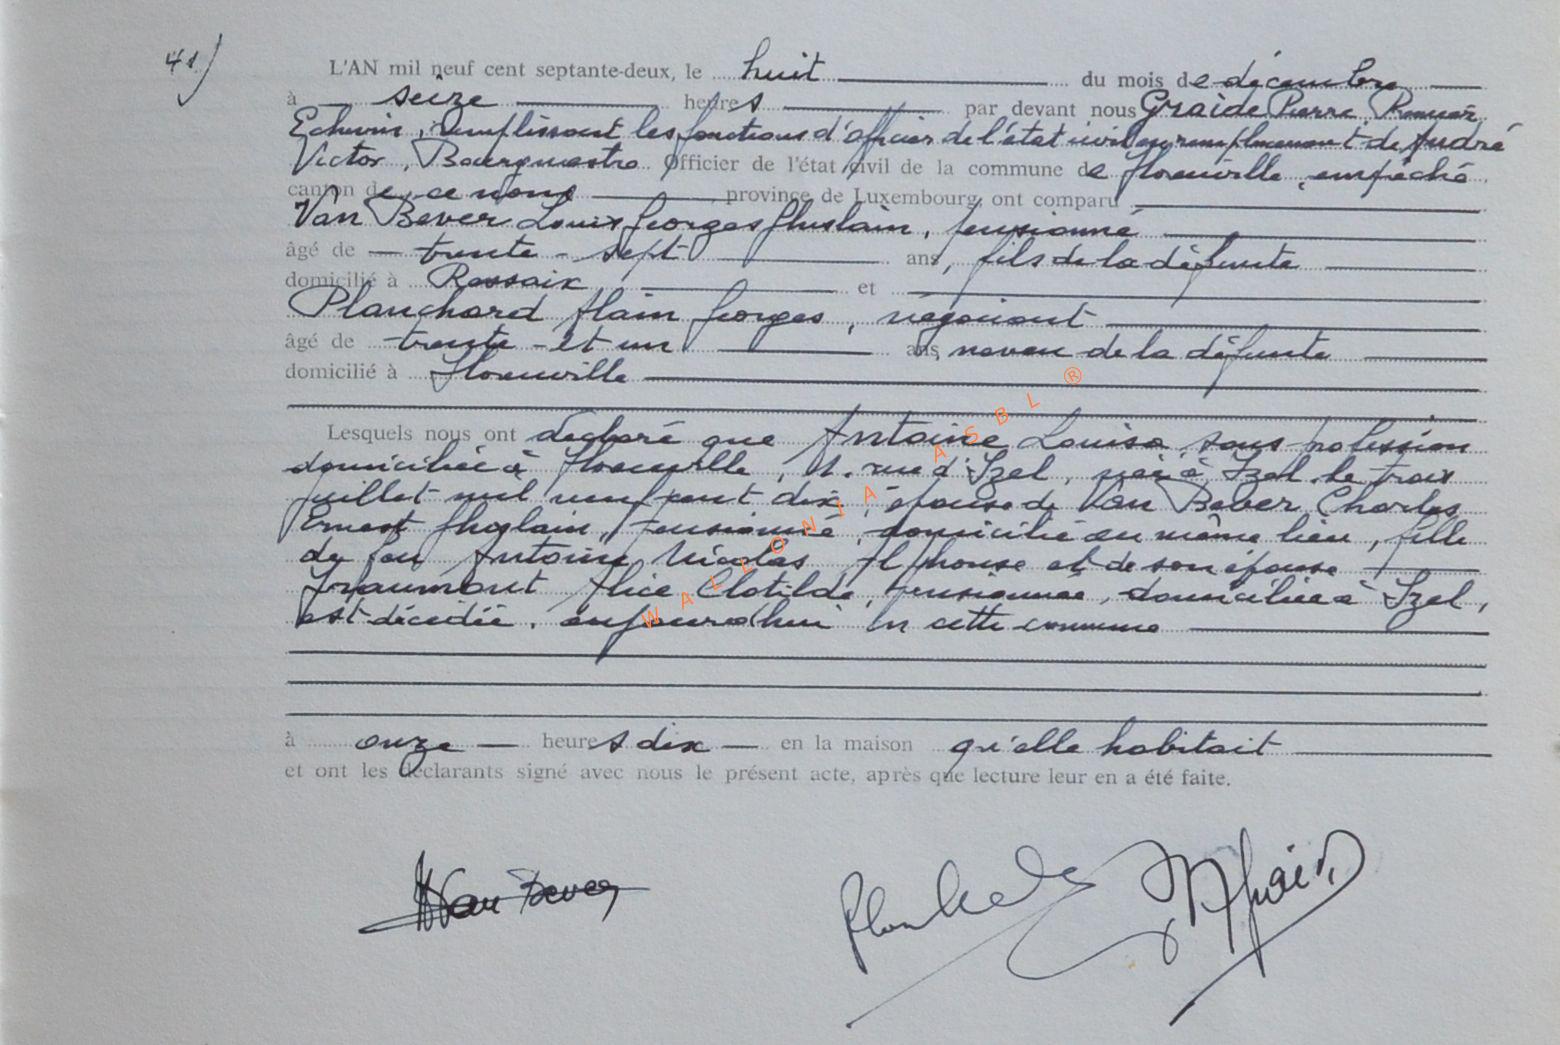 41)
L'AN mil neuf cent septante-deux, le huit du mois de décembre
à seize heures par devant nous Graide Pierre,
Echevin, remplissant les fonctions d'officier de l'état civil en remplacement de André
Victor, Bourgmestre Officier de l'état civil de la commune de Florenville, empêché
canton de ce nom province de Luxembourg, ont comparu
Van Bever Louis Georges Ghislain, pensionné
âgé de trente-sept ans, fils de la défunte
domicilié à et
Planchard Alain Georges, négociant
âgé de trente-et un ans, neveu de la défunte
domicilié à Florenville
Lesquels nous ont déclaré que Antoine Louisa, sans profession
domiciliée à Florenville, rue d'Izel, née à Izel le trois
juillet mil neuf cent dix, épouse de Van Bever Charles
Ernest Ghislain, pensionné, domicilié au même lieu, fille
de feu Antoine Nicolas Alphonse et de son épouse
Fraumont Alice Clotilde, pensionnée, domiciliée à Izel,
est décédée, aujourd'hui en cette commune
à onze heures dix en la maison qu'elle habitait
et ont les déclarants signé avec nous le présent acte, après que lecture leur en a été faite.
Van Bever
WALLONIA ASBL ®